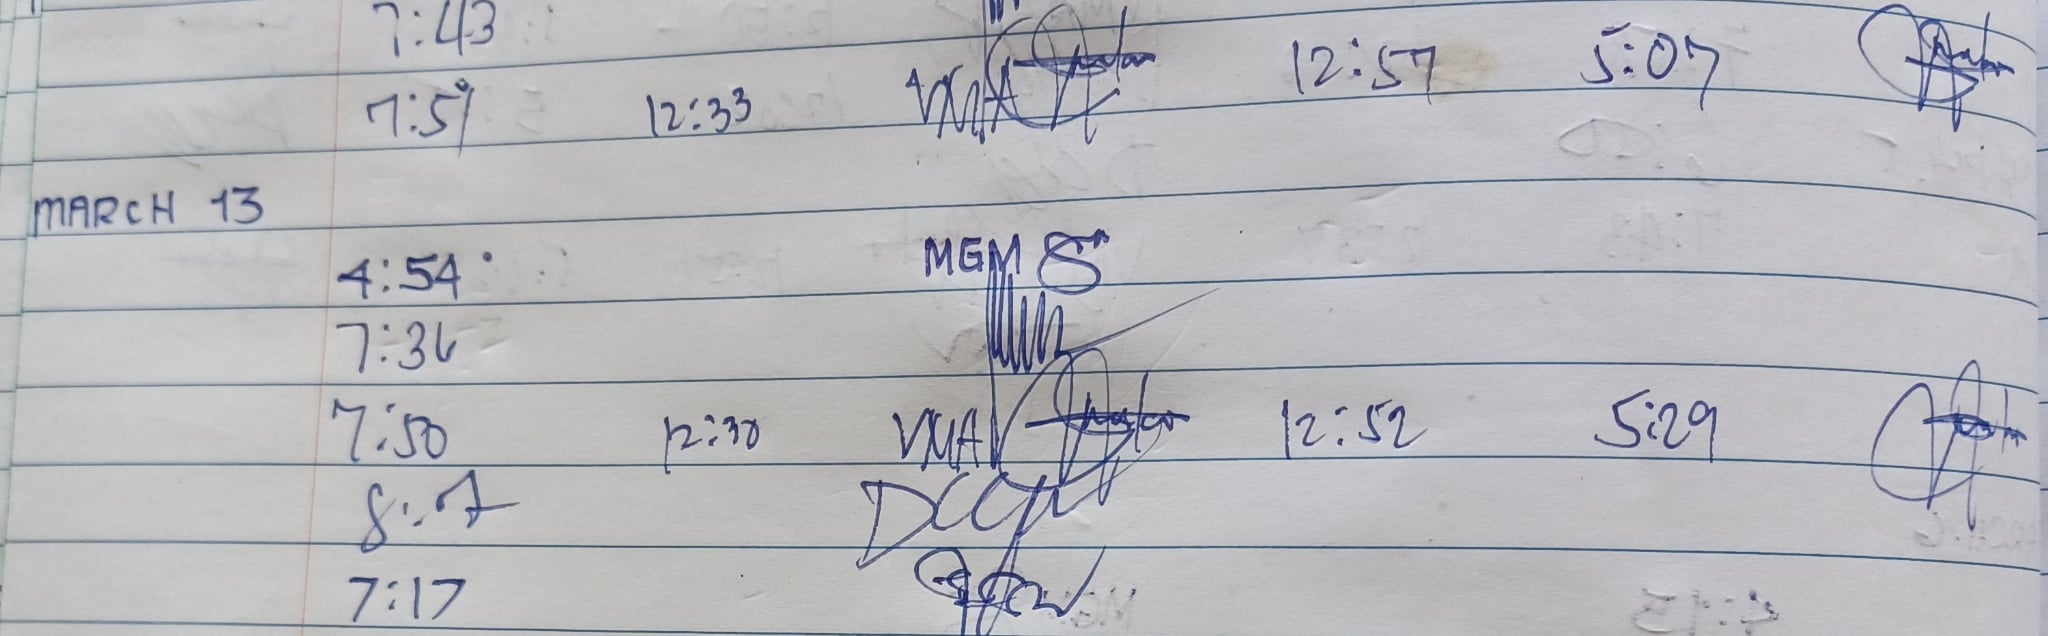 7:43
7:51 12:33 VMA 12:57 5:07
MARCH 13
4:54 MGM
7:36
7:50 12:30 VMA 12:52 5:29
DCC
7:17